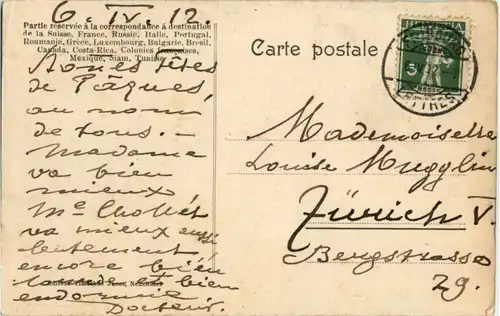 6. IV. 12.
Partie réservée à la correspondance à destination
de la Suisse, France, Russie, Italie, Portugal,
Roumanie, Grèce, Luxembourg, Bulgarie, Brésil,
Canada, Costa-Rica, Colonies françaises,
Mexique, Siam, Tunisie
Bonnes fêtes
de Pâques,
au nom
de tous. —
Madame
va bien
mieux
Me Chollet
va mieux aussi
lentement
encore bien
et bien
endormie
Docteur.
Carte postale
5
LETTRES
Mademoiselle
Louise Mugglin
Zürich V.
Bergstrasse
29.